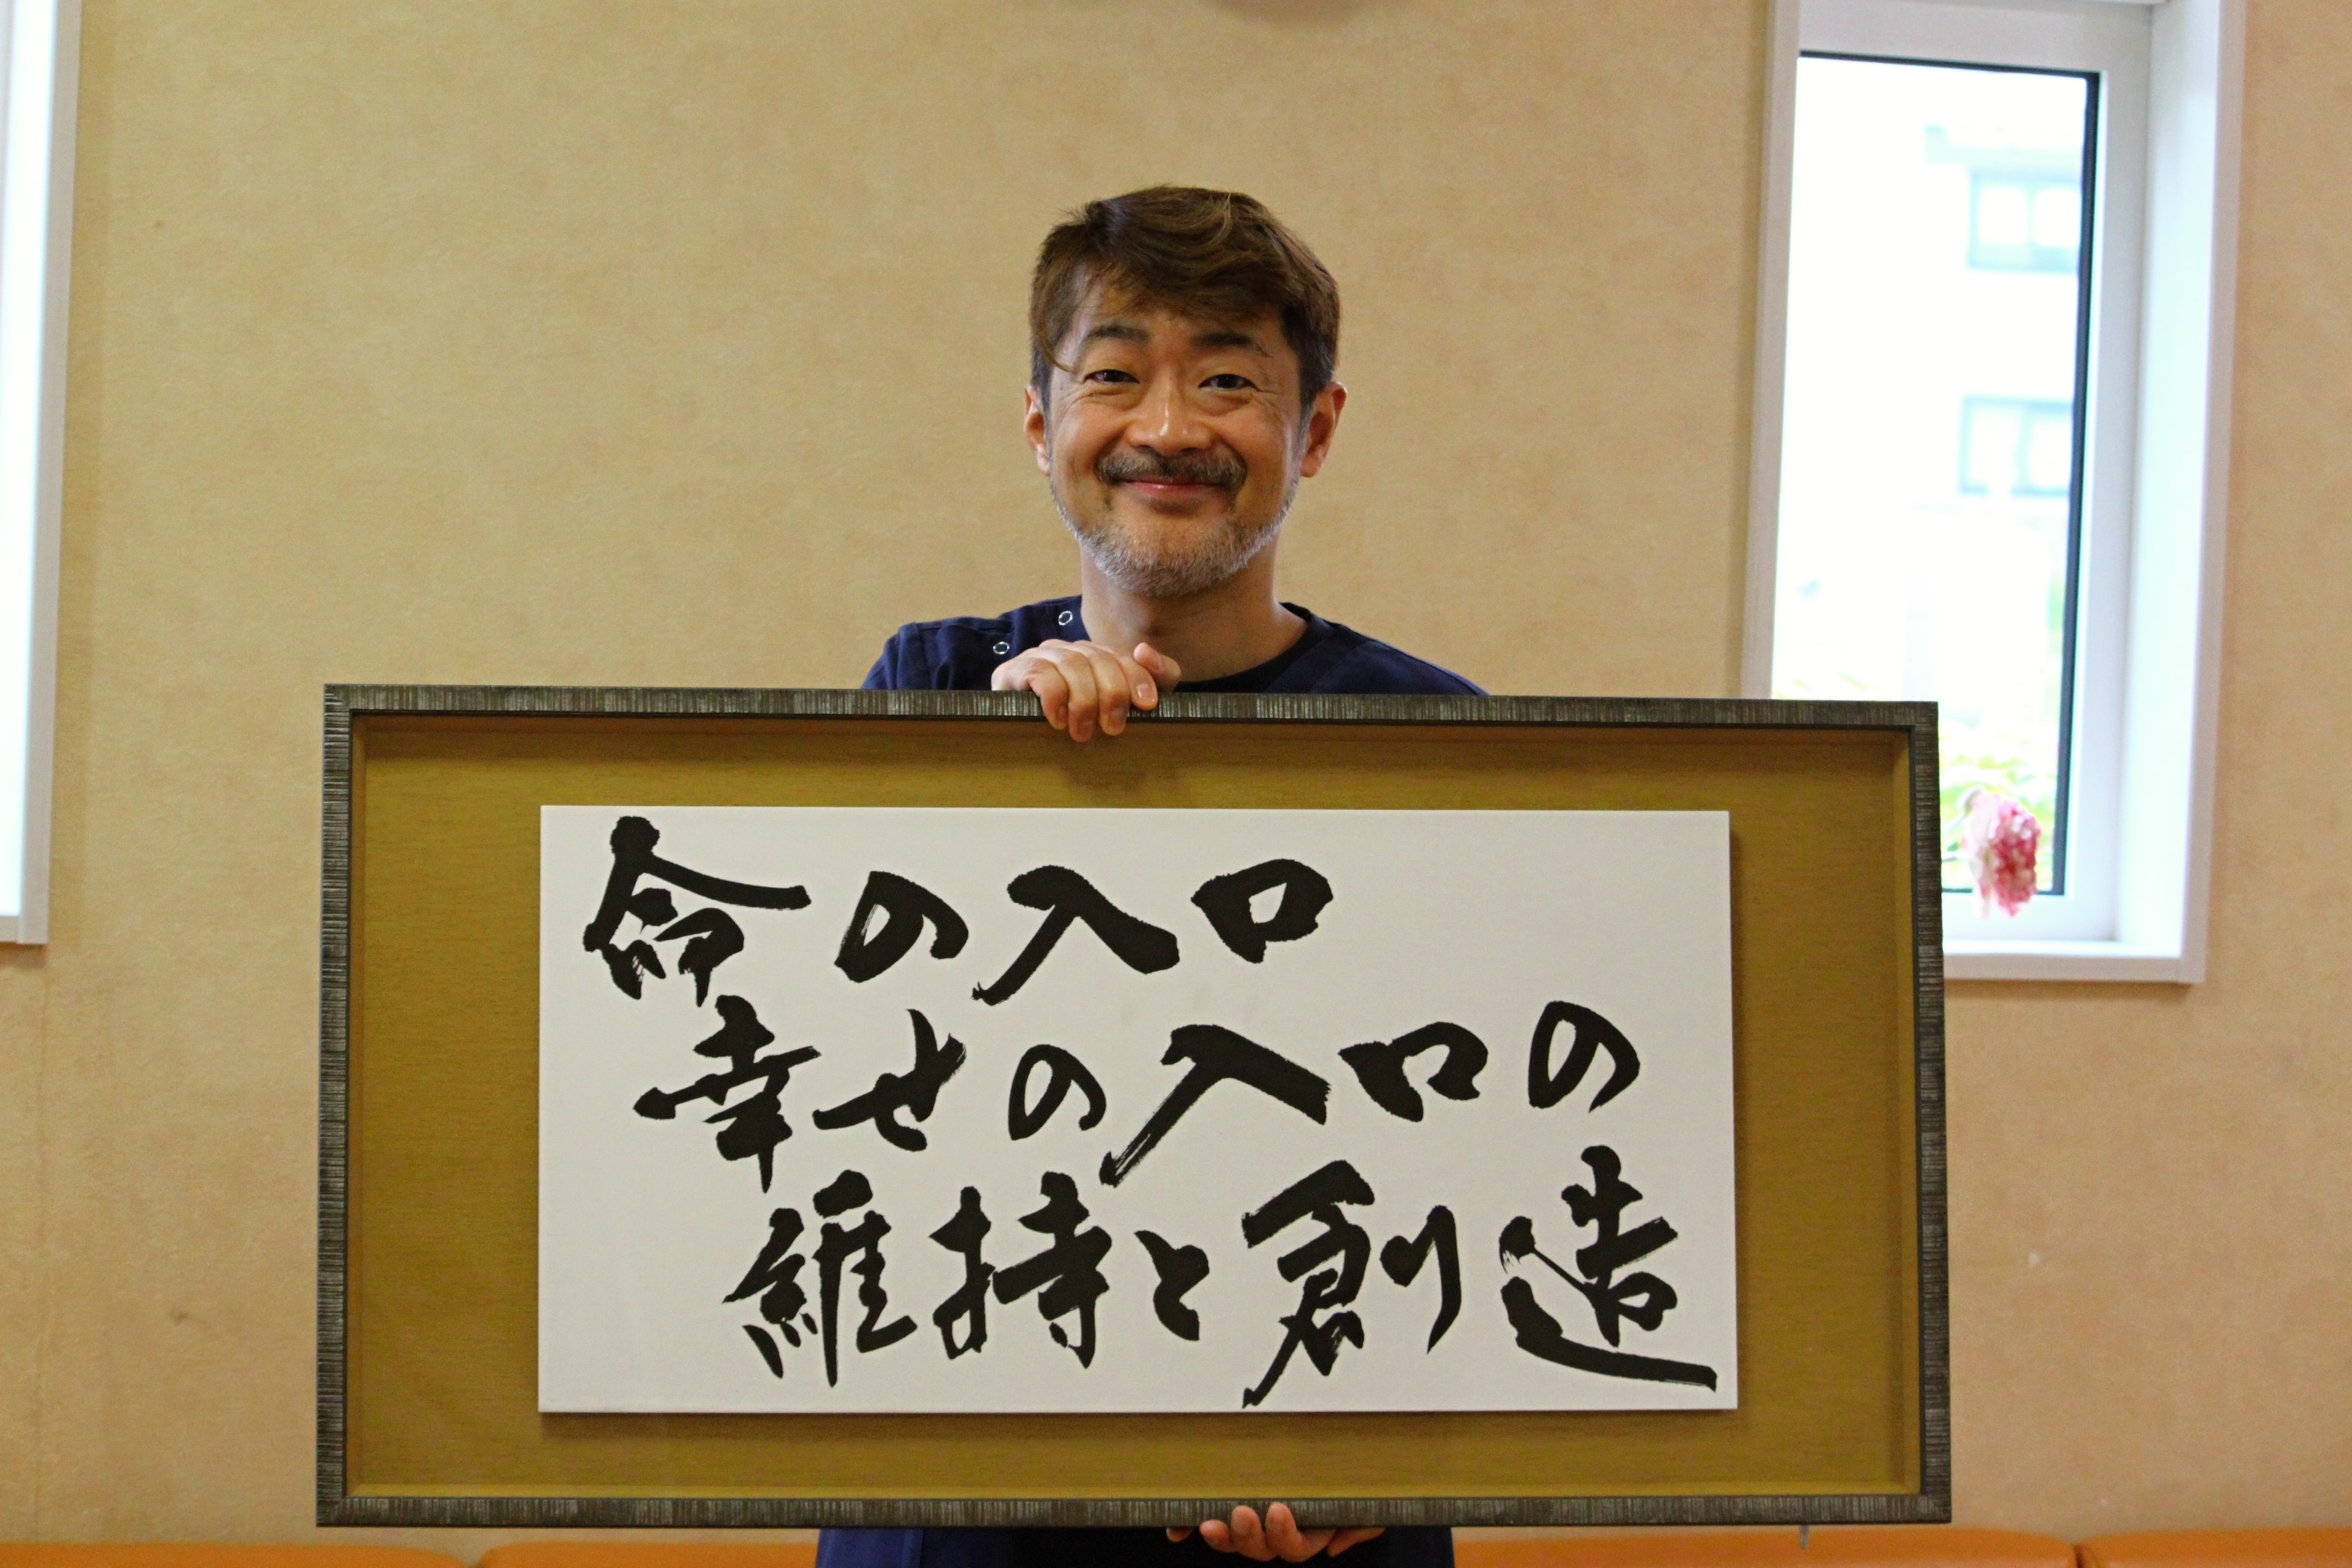 命の入口
幸せの入口の
維持と創造